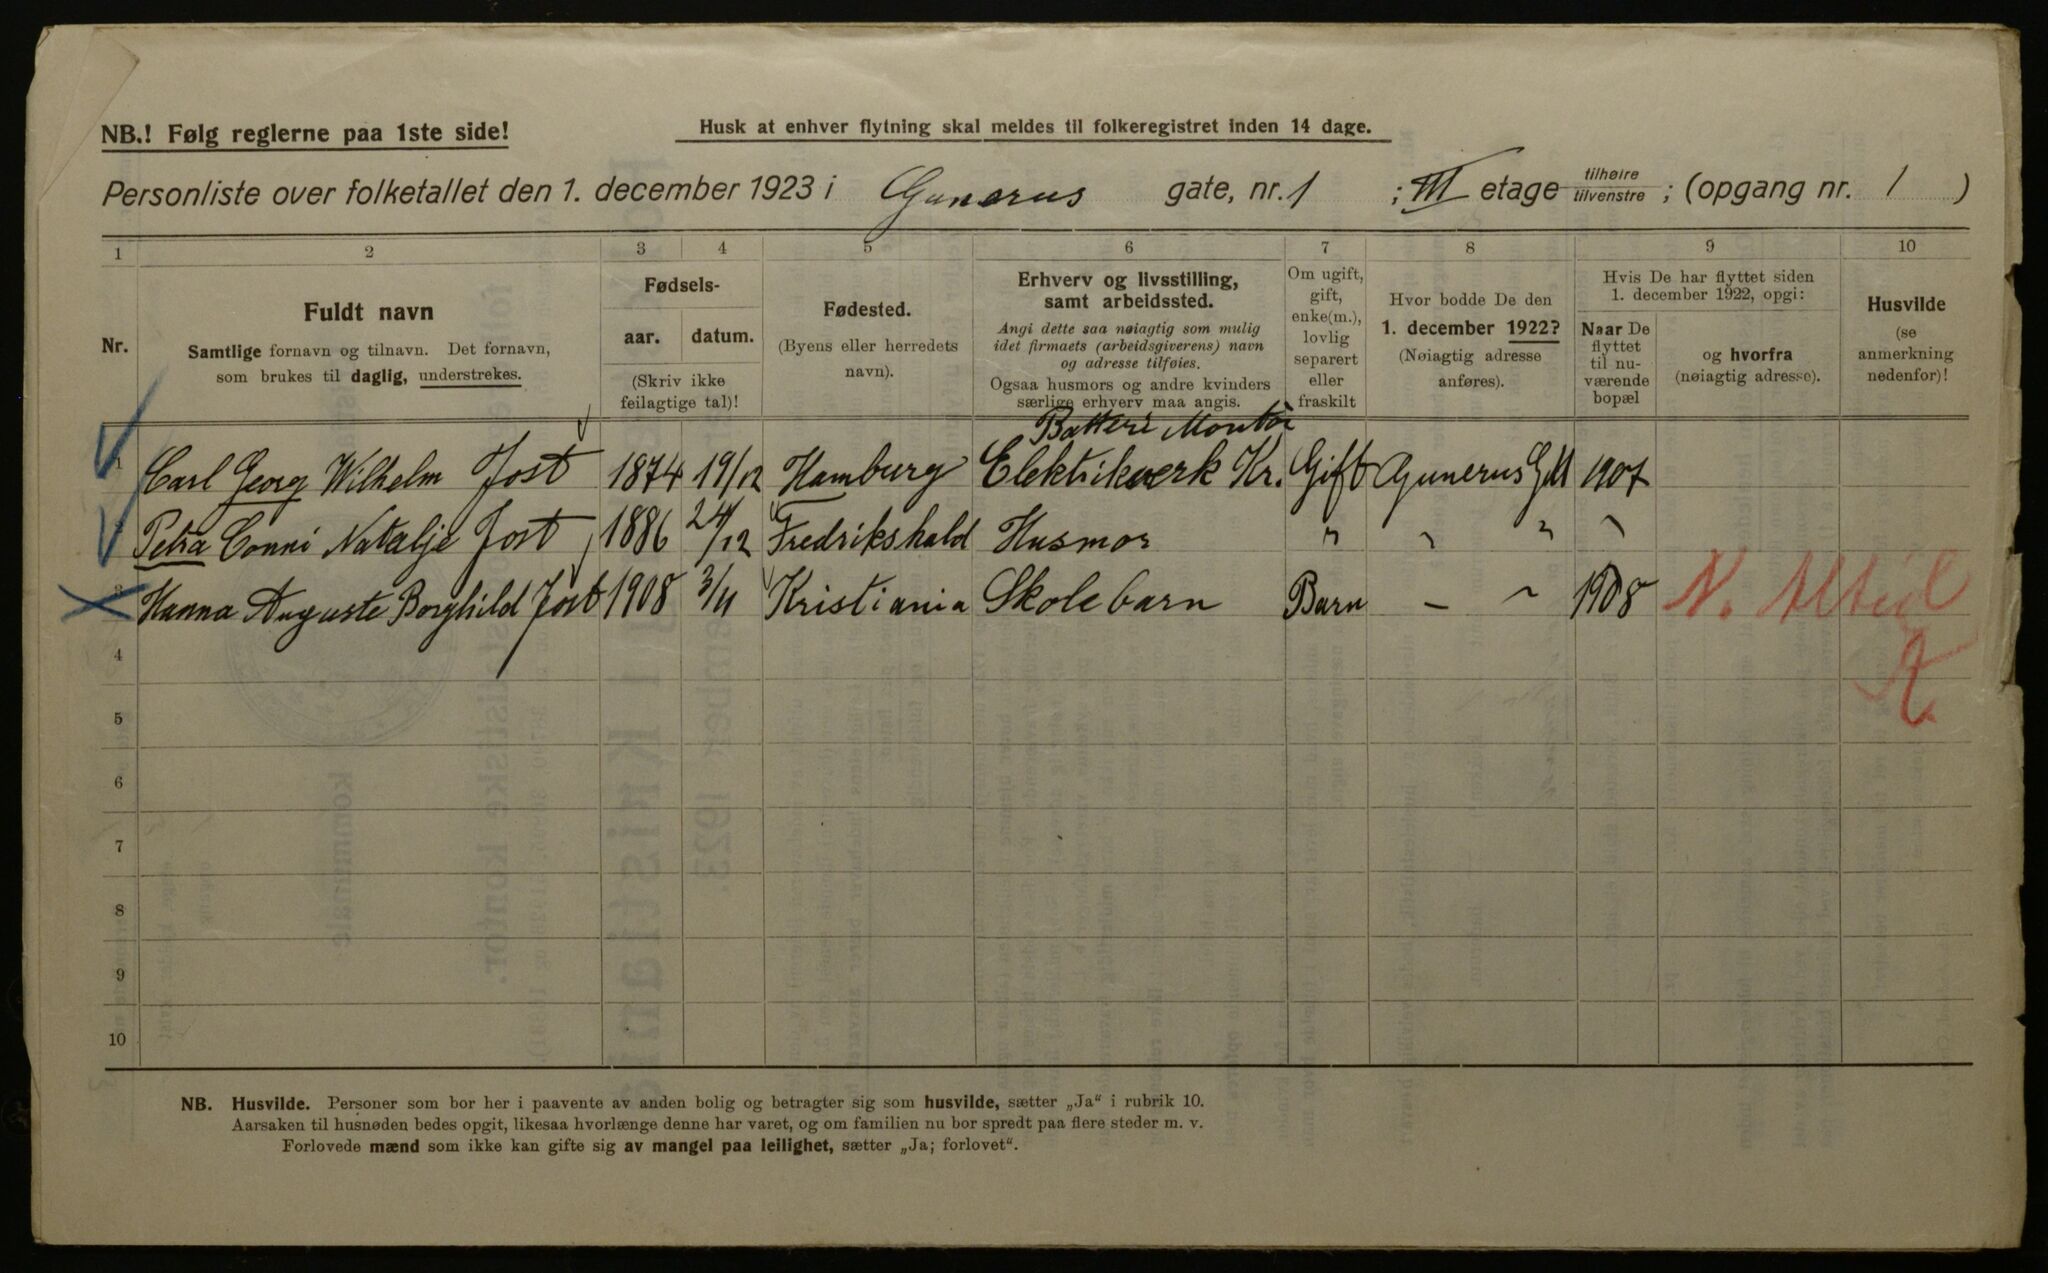 NB.! Følg reglerne paa 1ste side!
Husk at enhver flytning skal meldes til folkeregistret inden 14 dage.
Personliste over folketallet den 1. december 1923 i Gunerus gate, nr. 1 ; III etage tilhøire tilvenstre ; (opgang nr. 1 )
1 2 3 4 5 6 7 8 9 10
Nr.
Fuldt navn
Samtlige fornavn og tilnavn. Det fornavn,
som brukes til daglig, understrekes.
Fødsels-
aar. datum.
(Skriv ikke
feilagtige tal)!
Fødested.
(Byens eller herredets
navn).
Erhverv og livsstilling,
samt arbeidssted.
Angi dette saa nøiagtig som mulig
idet firmaets (arbeidsgiverens) navn
og adresse tilføies.
Ogsaa husmors og andre kvinders
særlige erhverv maa angis.
Om ugift,
gift,
enke(m.),
lovlig
separert
eller
fraskilt
Hvor bodde De den
1. december 1922?
(Nøiagtig adresse
anføres).
Hvis De har flyttet siden
1. december 1922, opgi:
Naar De
flyttet
til nu-
værende
bopæl
og hvorfra
(nøiagtig adresse).
Husvilde
(se
anmerkning
nedenfor)!
Batteri Montør
1 Carl Georg Wilhelm Jost 1874 19/12 Hamburg Elektrikverk Kr. Gift Gunerus G 1 1907
2 Petra Conni Natalje Jost 1886 24/12 Fredrikshald Husmor " " " "
3 Hanna Auguste Borghild Jost 1908 3/11 Kristiania Skolebarn Barn – " 1908 N. Altid
4
5
6
7
8
9
10
NB. Husvilde. Personer som bor her i paavente av anden bolig og betragter sig som husvilde, sætter „Ja“ i rubrik 10.
Aarsaken til husnøden bedes opgit, likesaa hvorlænge denne har varet, og om familien nu bor spredt paa flere steder m. v.
Forlovede mænd som ikke kan gifte sig av mangel paa leilighet, sætter „Ja; forlovet“.